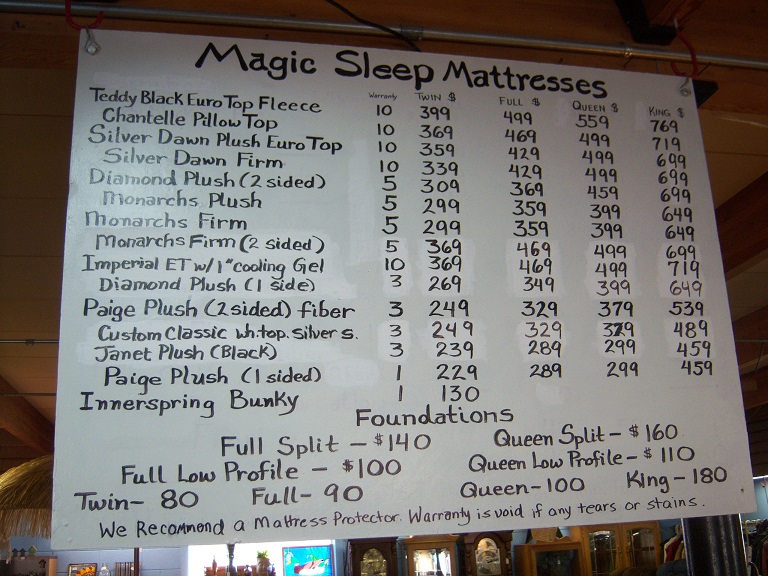 Magic Sleep Mattresses
Warranty TWIN $ FULL $ QUEEN $ KING $
Teddy Black Euro Top Fleece 10 399 499 559 769
Chantelle Pillow Top 10 369 469 499 719
Silver Dawn Plush Euro Top 10 359 429 499 699
Silver Dawn Firm 10 339 429 499 699
Diamond Plush (2 sided) 5 309 369 459 699
Monarchs Plush 5 299 359 399 649
Monarchs Firm 5 299 359 399 649
Monarchs Firm (2 sided) 5 369 469 499 699
Imperial ET w/1" cooling Gel 10 369 469 499 719
Diamond Plush (1 side) 3 269 349 399 649
Paige Plush (2 sided) fiber 3 249 329 379 539
Custom Classic wh.top. silver s. 3 249 329 329 489
Janet Plush (Black) 3 239 289 299 459
Paige Plush (1 sided) 1 229 289 299 459
Innerspring Bunky 1 130
Foundations
Full Split - $140 Queen Split - $160
Full Low Profile - $100 Queen Low Profile - $110
Twin - 80 Full - 90 Queen - 100 King - 180
We Recommend a Mattress Protector. Warranty is void if any tears or stains.